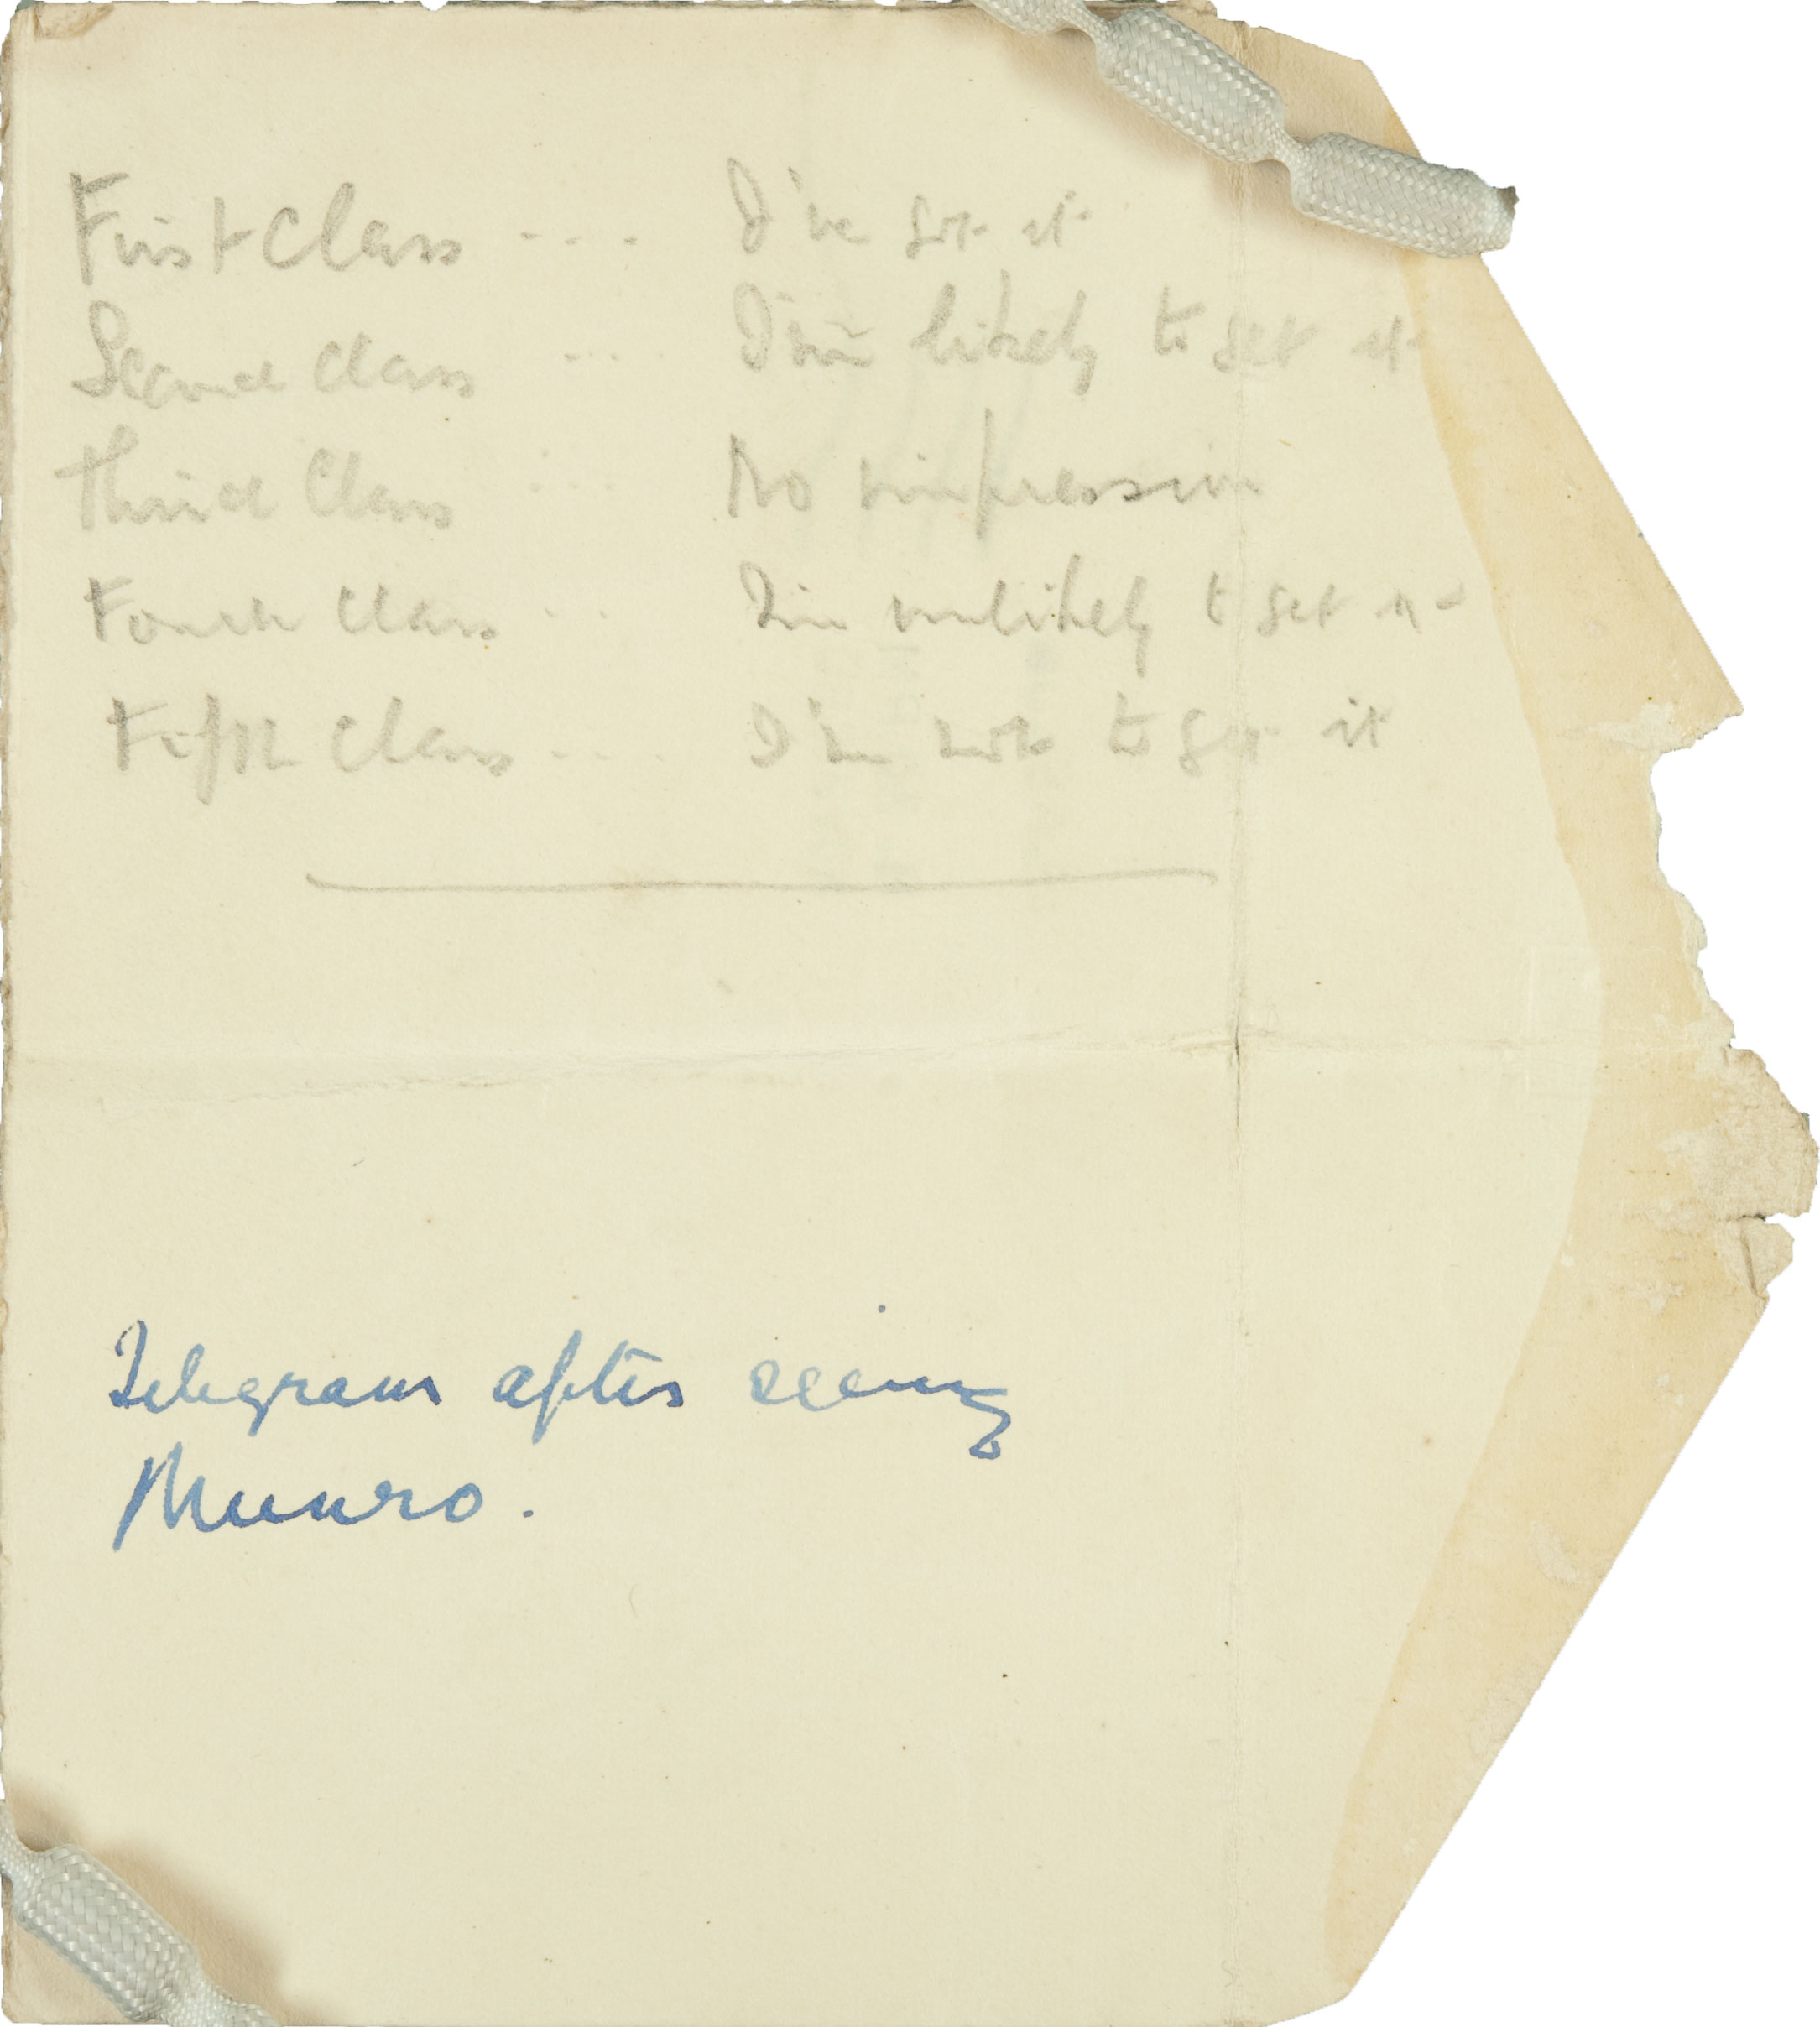 First Class .... I've got it
Second Class .... I'm likely to get it
Third Class .... No impression
Fourth Class .... I'm unlikely to get it
Fifth Class .... I'm not to get it
Telegram after seeing
Munro.